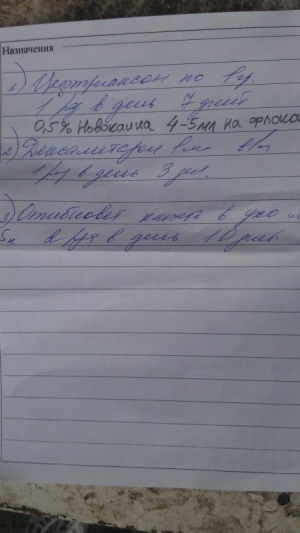 Назначения
1) Цефтриаксон по 1гр.
1 р/д в день 7 дней
0,5% Новокаина 4-5мл на флакон
2) Дексаметазон 1 мл в/м
1 р/д в день 3 дня.
3) Отибиовет капать в ухо
5к 2 р/д в день 10 дней.